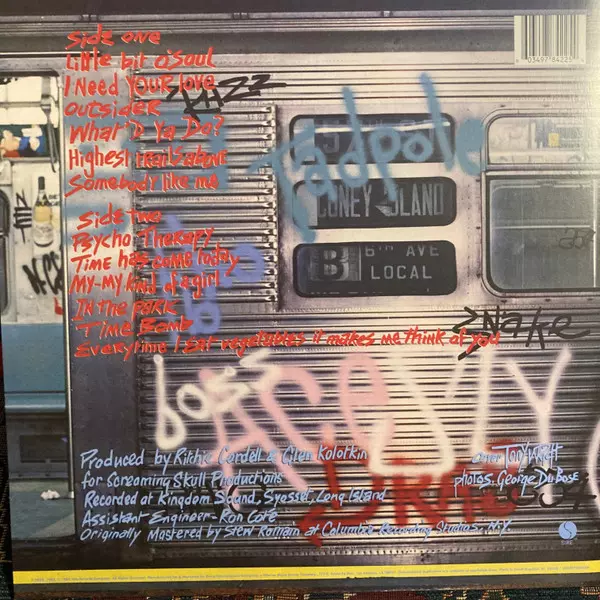 Side one
Little bit o'Soul
I Need YOUR Love
Outsider
What'D Ya Do?
Highest trails above
Somebody like me
Side two
Psycho Therapy
Time has come today
My-my kind of a girl
In the park
Time Bomb
Everytime I Eat vegetables it makes me think of you
KIZZ
Tadpole
CONEY ISLAND
B
6TH AVE
LOCAL
SNAKE
boss
ACE MY
Produced by Ritchie Cordell & Glen Kolotkin
for Screaming Skull Productions
Recorded at Kingdom Sound, Syosset, Long Island
Assistant Engineer-Ron Cote
Originally Mastered by Stew Romain at Columbia Recording Studios, N.Y.
TONY WRIGHT
photos. George DuBose